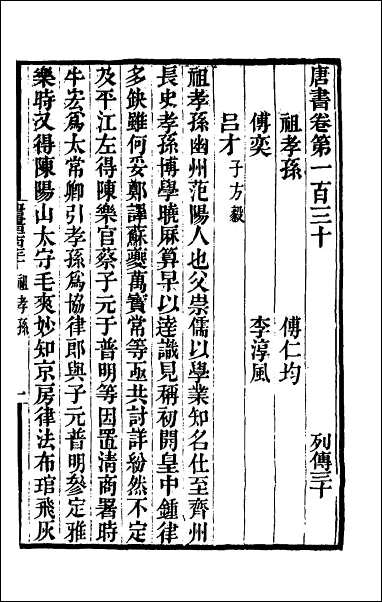 唐書卷第一百三十 列傳三十
祖孝孫 傅仁均
傅奕 李淳風
呂才 子方毅
祖孝孫幽州范陽人也父崇儒以學業知名仕至齊州
長史孝孫博學曉厤算早以達識見稱初開皇中鍾律
多缺雖何妥鄭譯蘇夔萬寶常等亟共討詳紛然不定
及平江左得陳樂官蔡子元于普明等因置清商署時
牛宏爲太常卿引孝孫爲協律郎與子元普明參定雅
樂時又得陳陽山太守毛爽妙知京房律法布琯飛灰
祖孝孫 一